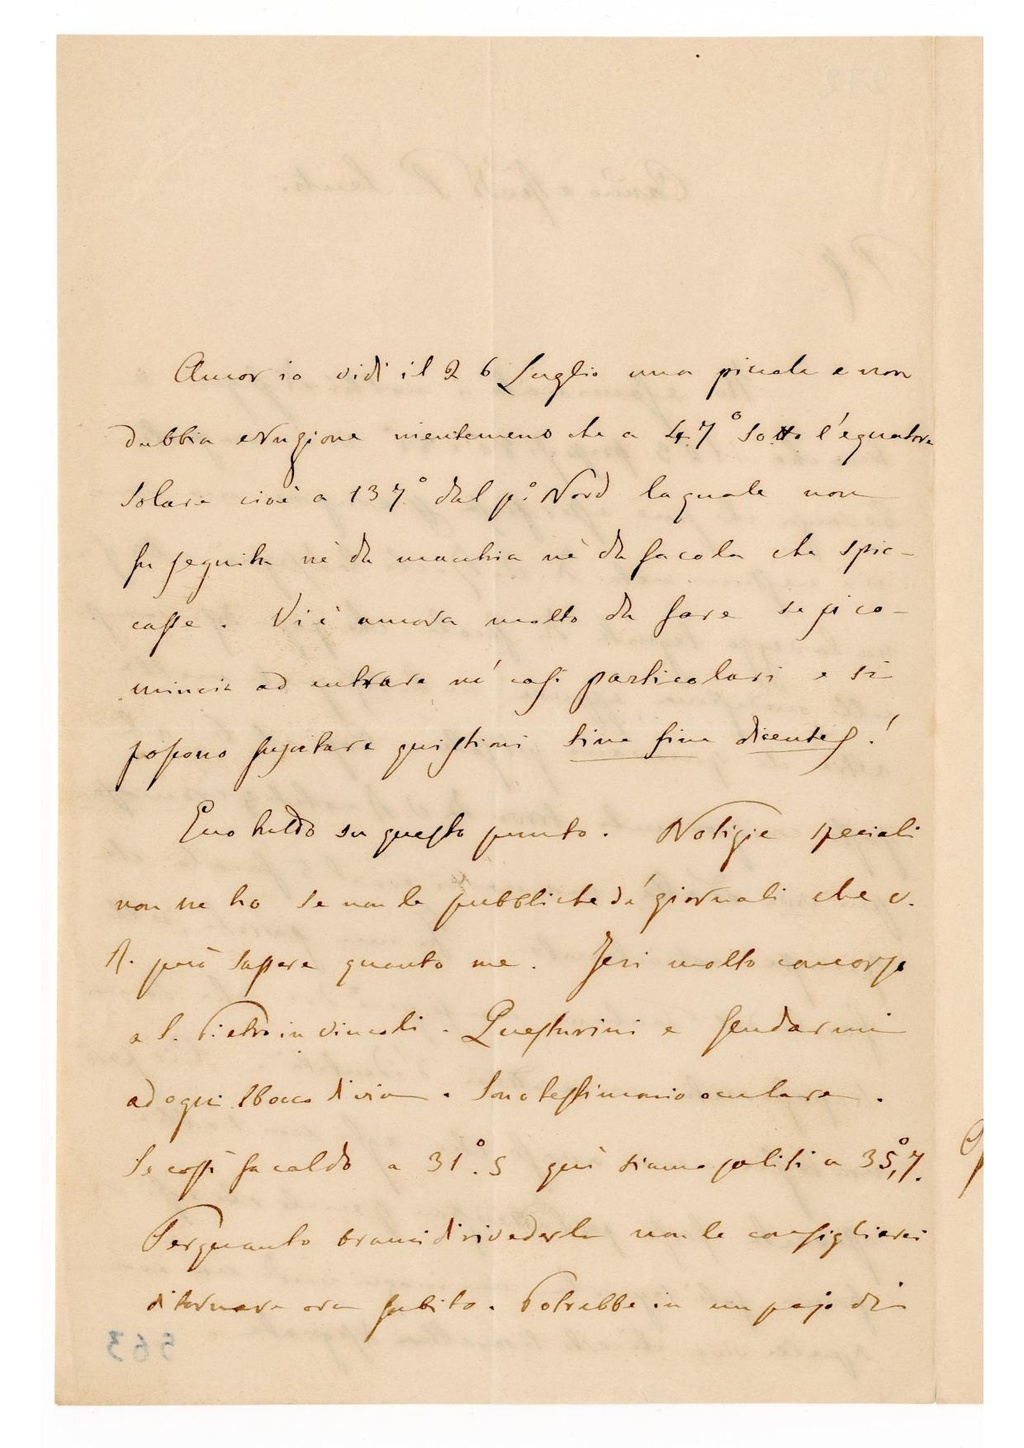 Ancor io vidi il 26 Luglio una piccola e non
dubbia eruzione nientemeno che a 47° sotto l'equatore
solare cioè a 137° dal p.° Nord la quale non
fu seguita nè da macchia nè da facola che spic-
casse. Vi è ancora molto da fare se si co-
mincia ad entrare ne' casi particolari e si
possono suscitare quistioni sine fine dicentes!
Ecco tutto su questo punto. Notizie speciali
non ne ho se non le pubbliche da' giornali che V.
R. può sapere quanto me. Jeri molto concorso
a S. Pietro in Vincoli. Questurini e gendarmi
ad ogni sbocco di via. Sono testimonio oculare.
Se costì fa caldo a 31°.5 quì siamo saliti a 35°,7.
Per quanto brami di rivederla non le consiglierei
di tornare ora subito. Potrebbe in un pajo di
563